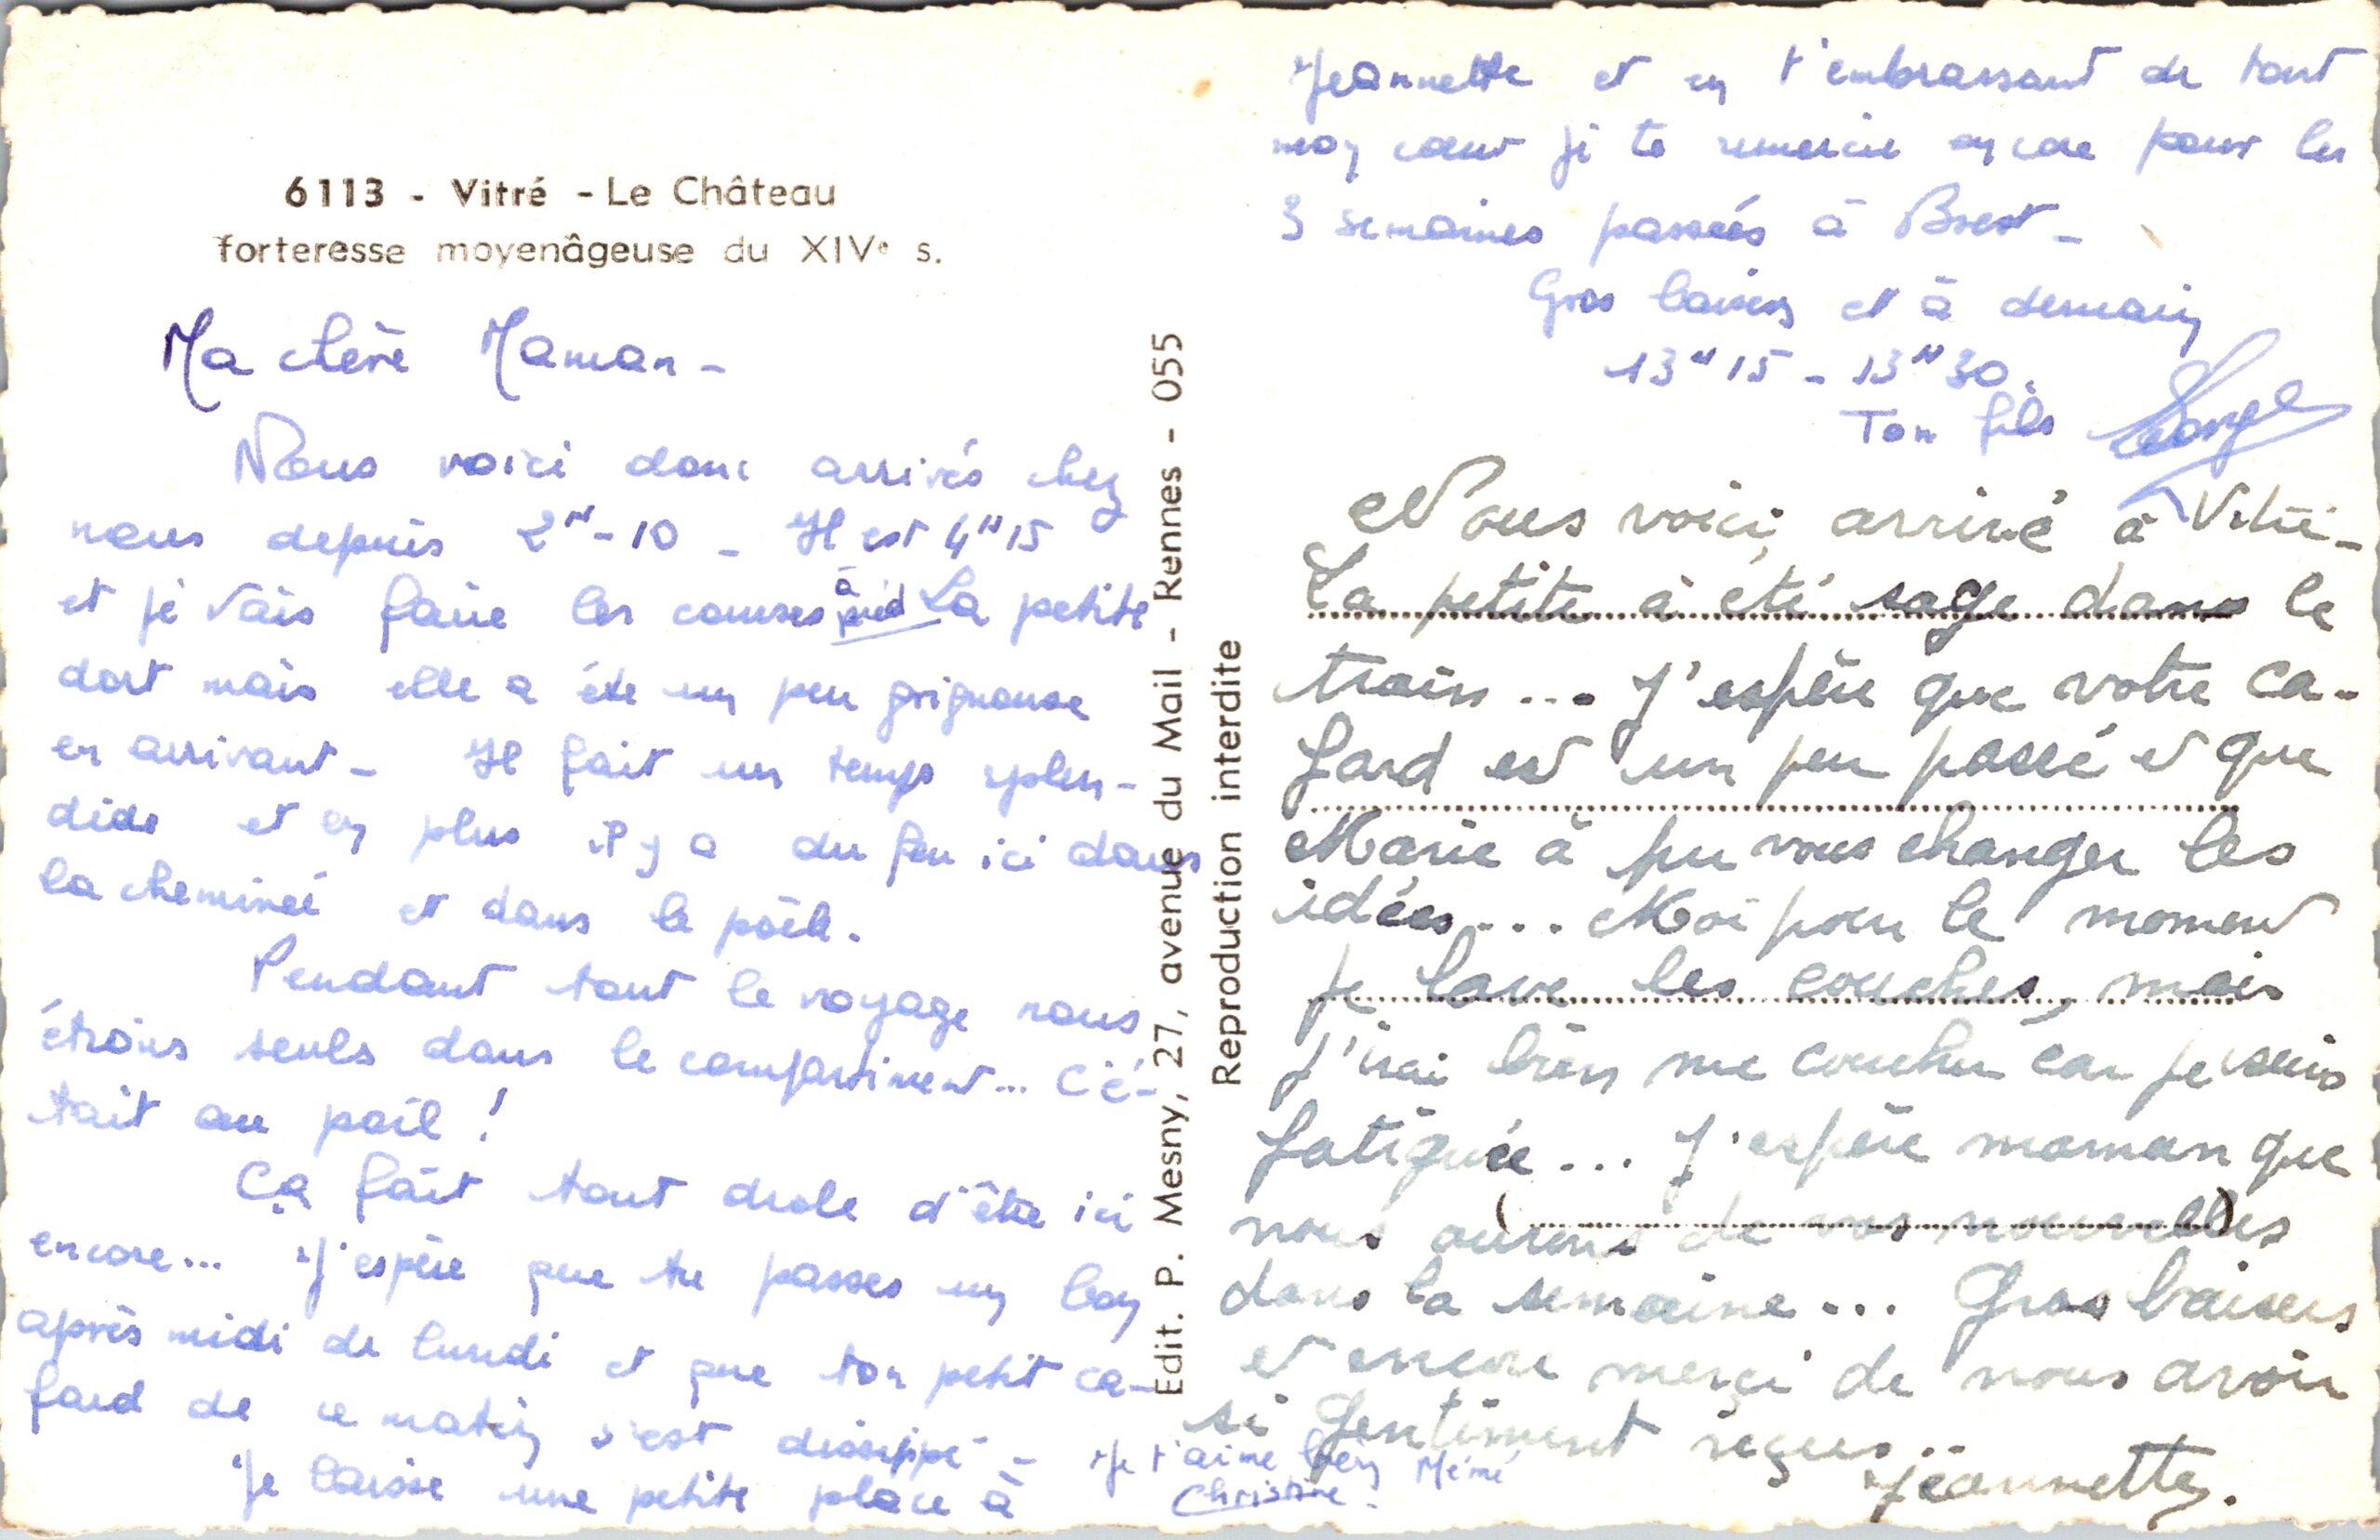 6113 - Vitré - Le Château
forteresse moyenâgeuse du XIVe s.
Ma chère Maman -
Nous voici donc arrivés chez
nous depuis 2H-10 - Il est 4H15
et je vais faire les courses à pied La petite
dort mais elle a été un peu grignouse
en arrivant - Il fait un temps splen-
dide et en plus il y a du feu ici dans
la cheminée et dans le poêle.
Pendant tout le voyage nous
étions seuls dans le compartiment... C'é-
tait au poil !
Ça fait tout drole d'être ici
encore... J'espère que tu passes un bon
après midi de lundi et que ton petit ca-
fard de ce matin s'est dissippé -
Je laisse une petite place à
Jeannette et en t'embrassant de tout
mon cœur je te remercie encore pour les
3 semaines passées à Brest -
Gros baisers et à demain
13H15 - 13H30.
Ton fils
Nous voici arrivé à Vitré -
La petite à été sage dans le
train... J'espère que votre ca-
fard est un peu passé et que
Marie à pu vous changer les
idées... Moi pour le moment
je lave les couches, mais
j'irai bien me coucher car je suis
fatiguée... J'espère maman que
nous aurons de vos nouvelles
dans la semaine... Gros baisers
et encore merci de nous avoir
si gentiment reçus..
Jeannette.
Je t'aime bien Mémé
Christine -
Edit. P. Mesny, 27, avenue du Mail - Rennes - 055
Reproduction interdite